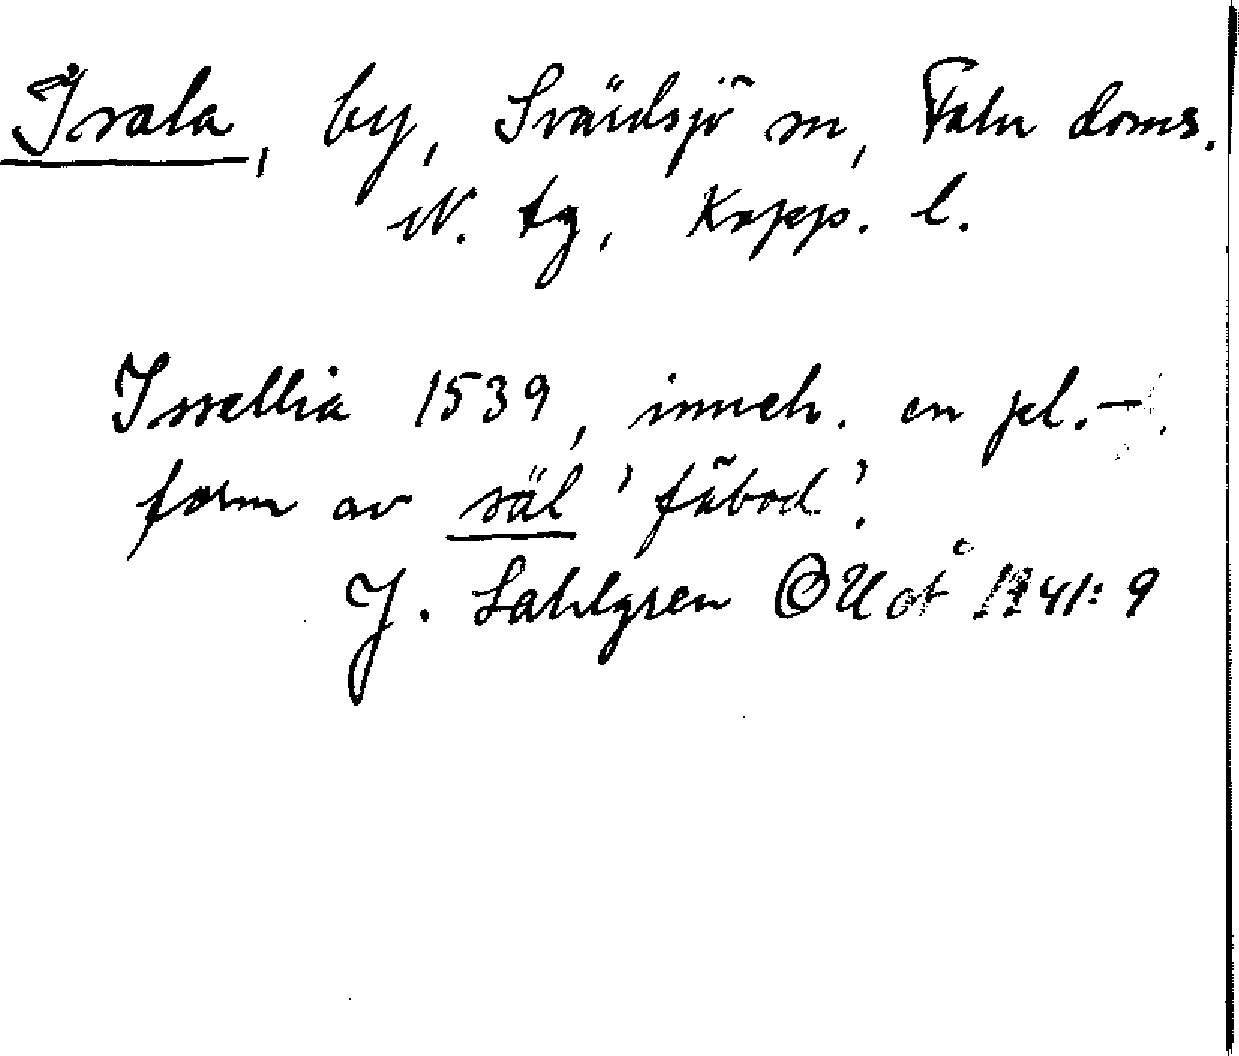 Isala, by, Svärdsjö sn, Falu doms.
N. tg, Kopp. l.
Issellia 1539, inneh. en pl.-
form av säl 'fäbod'.
J. Sahlgren OUoÅ 1941: 9